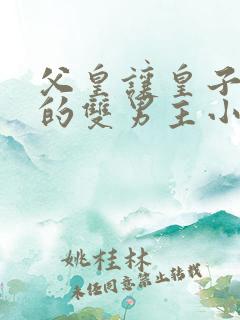 父皇讓皇子
的雙男主小
姚桂林
未经同意禁止转载